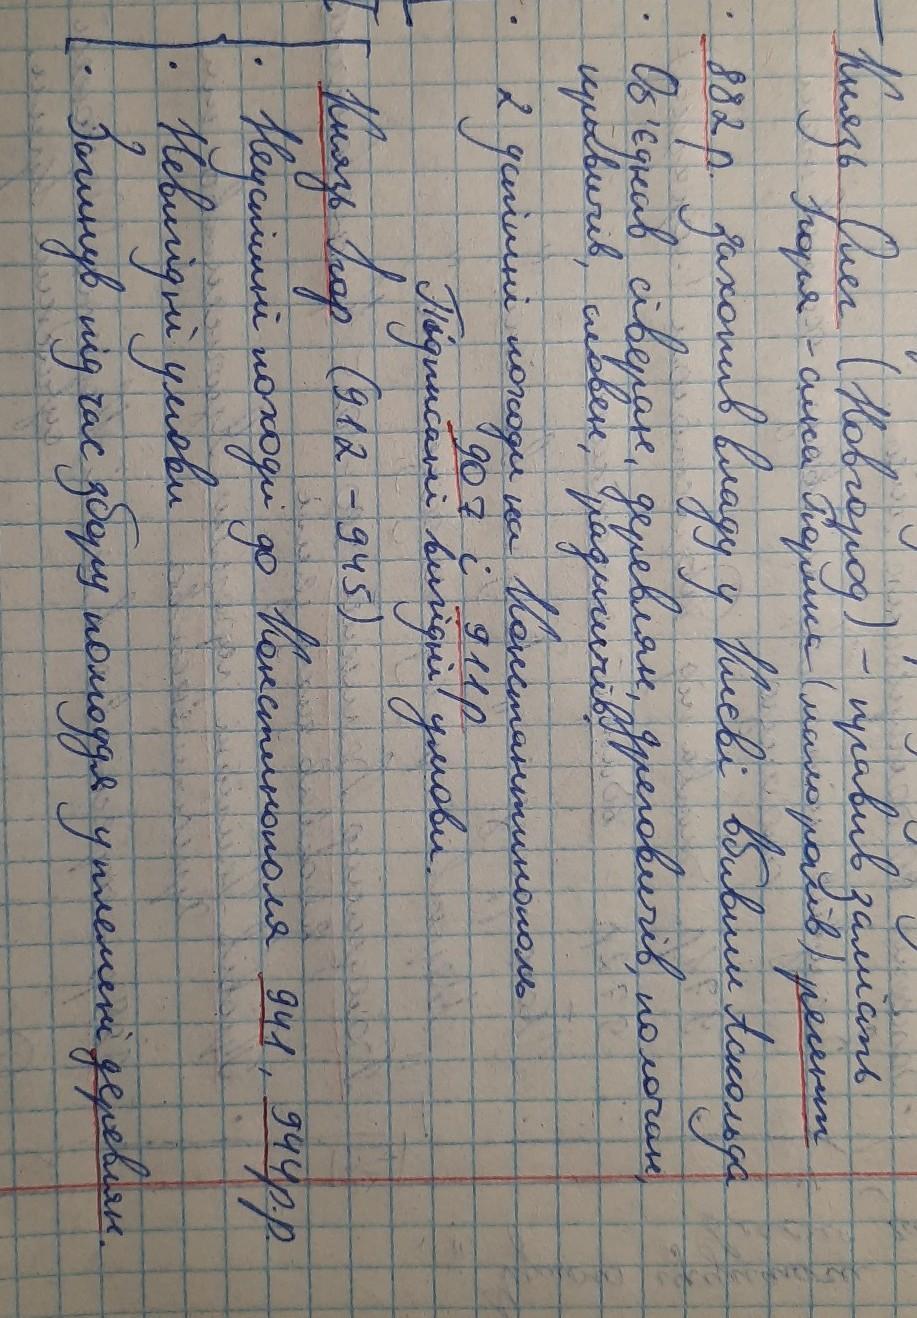 Князь Олег (Новгород) – правив замість
Ігоря – сина Рюрика (малороків) регент
• 882 р. захопив владу у Києві вбивши Аскольда
• Об'єднав сіверян, деревлян, дреговичів, полочан,
кривичів, словен, радимичів.
• 2 успішні походи на Константинополь
907 і 911р
Підписані вигідні умови.
Князь Ігор (912 – 945)
• Неуспішні походи до Константинополя 941, 944р.р.
• Невигідні умови
• Загинув під час збору полюддя у племені деревлян.